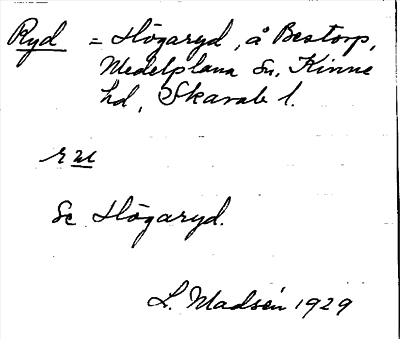 Ryd = Högaryd, å Bestorp,
Medelplana Sn, Kinne
hd, Skarab l.
Se Högaryd.
L. Madsén 1929